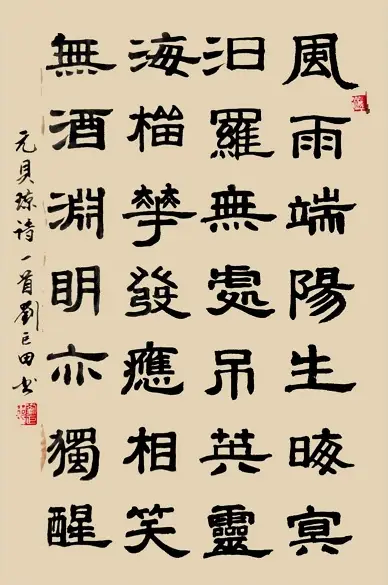 風雨端陽生晦冥
汨羅無處吊英靈
海榴華發應相笑
無酒淵明亦獨醒
元貝琼诗一首劉田书